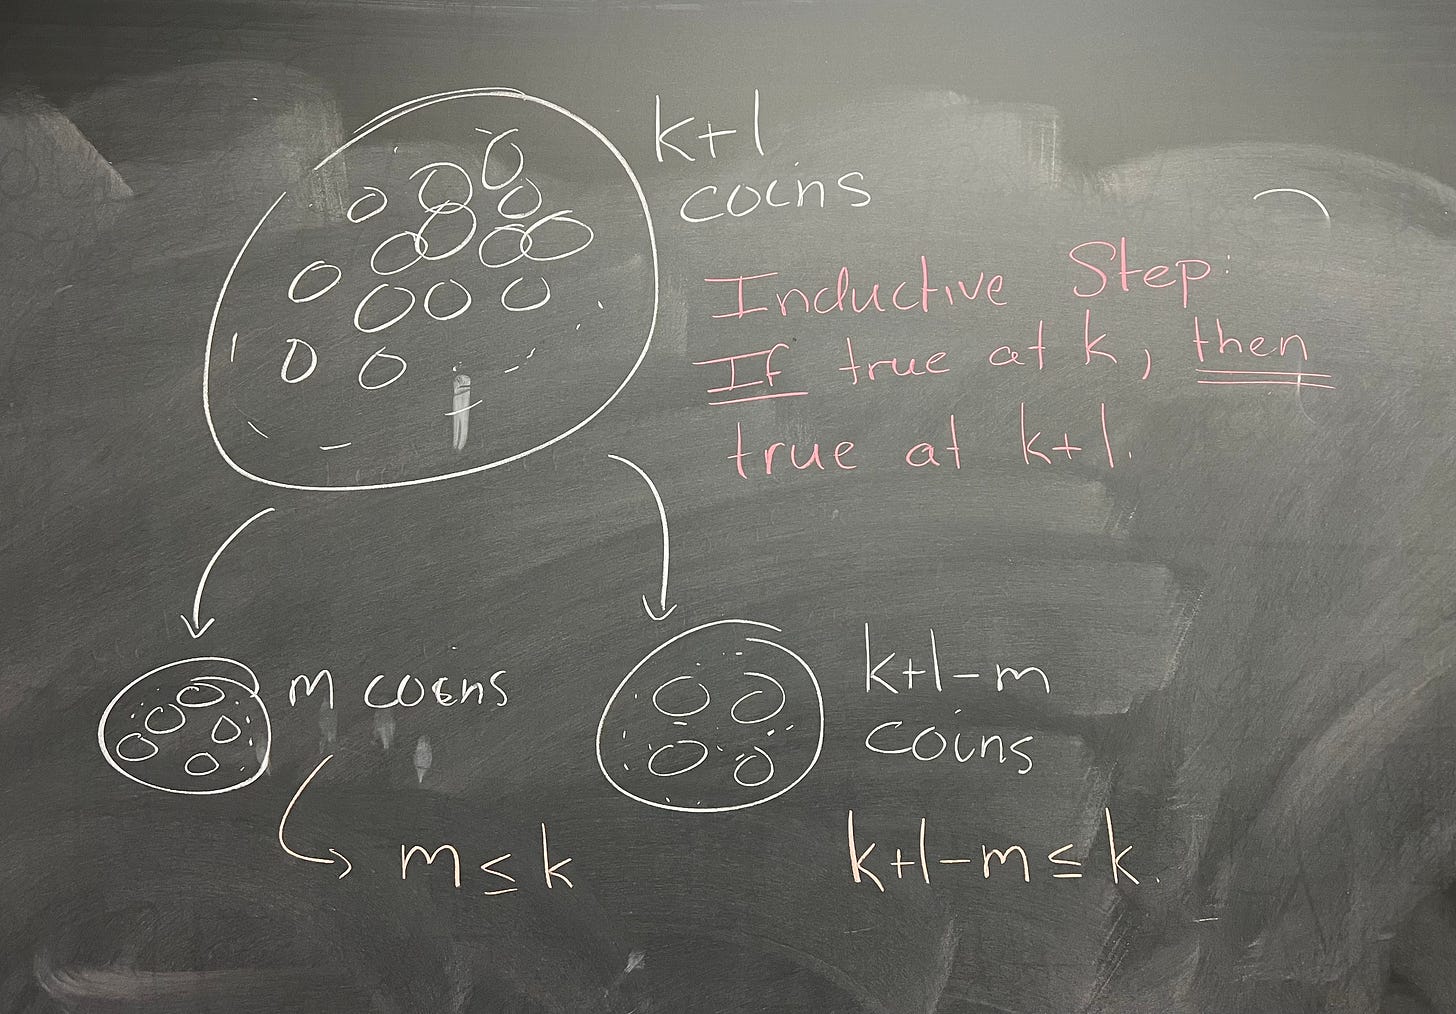 k+1
coins
Inductive Step:
If true at k, then
true at k+1.
m coins
k+1-m
coins
m ≤ k
k+1-m ≤ k.